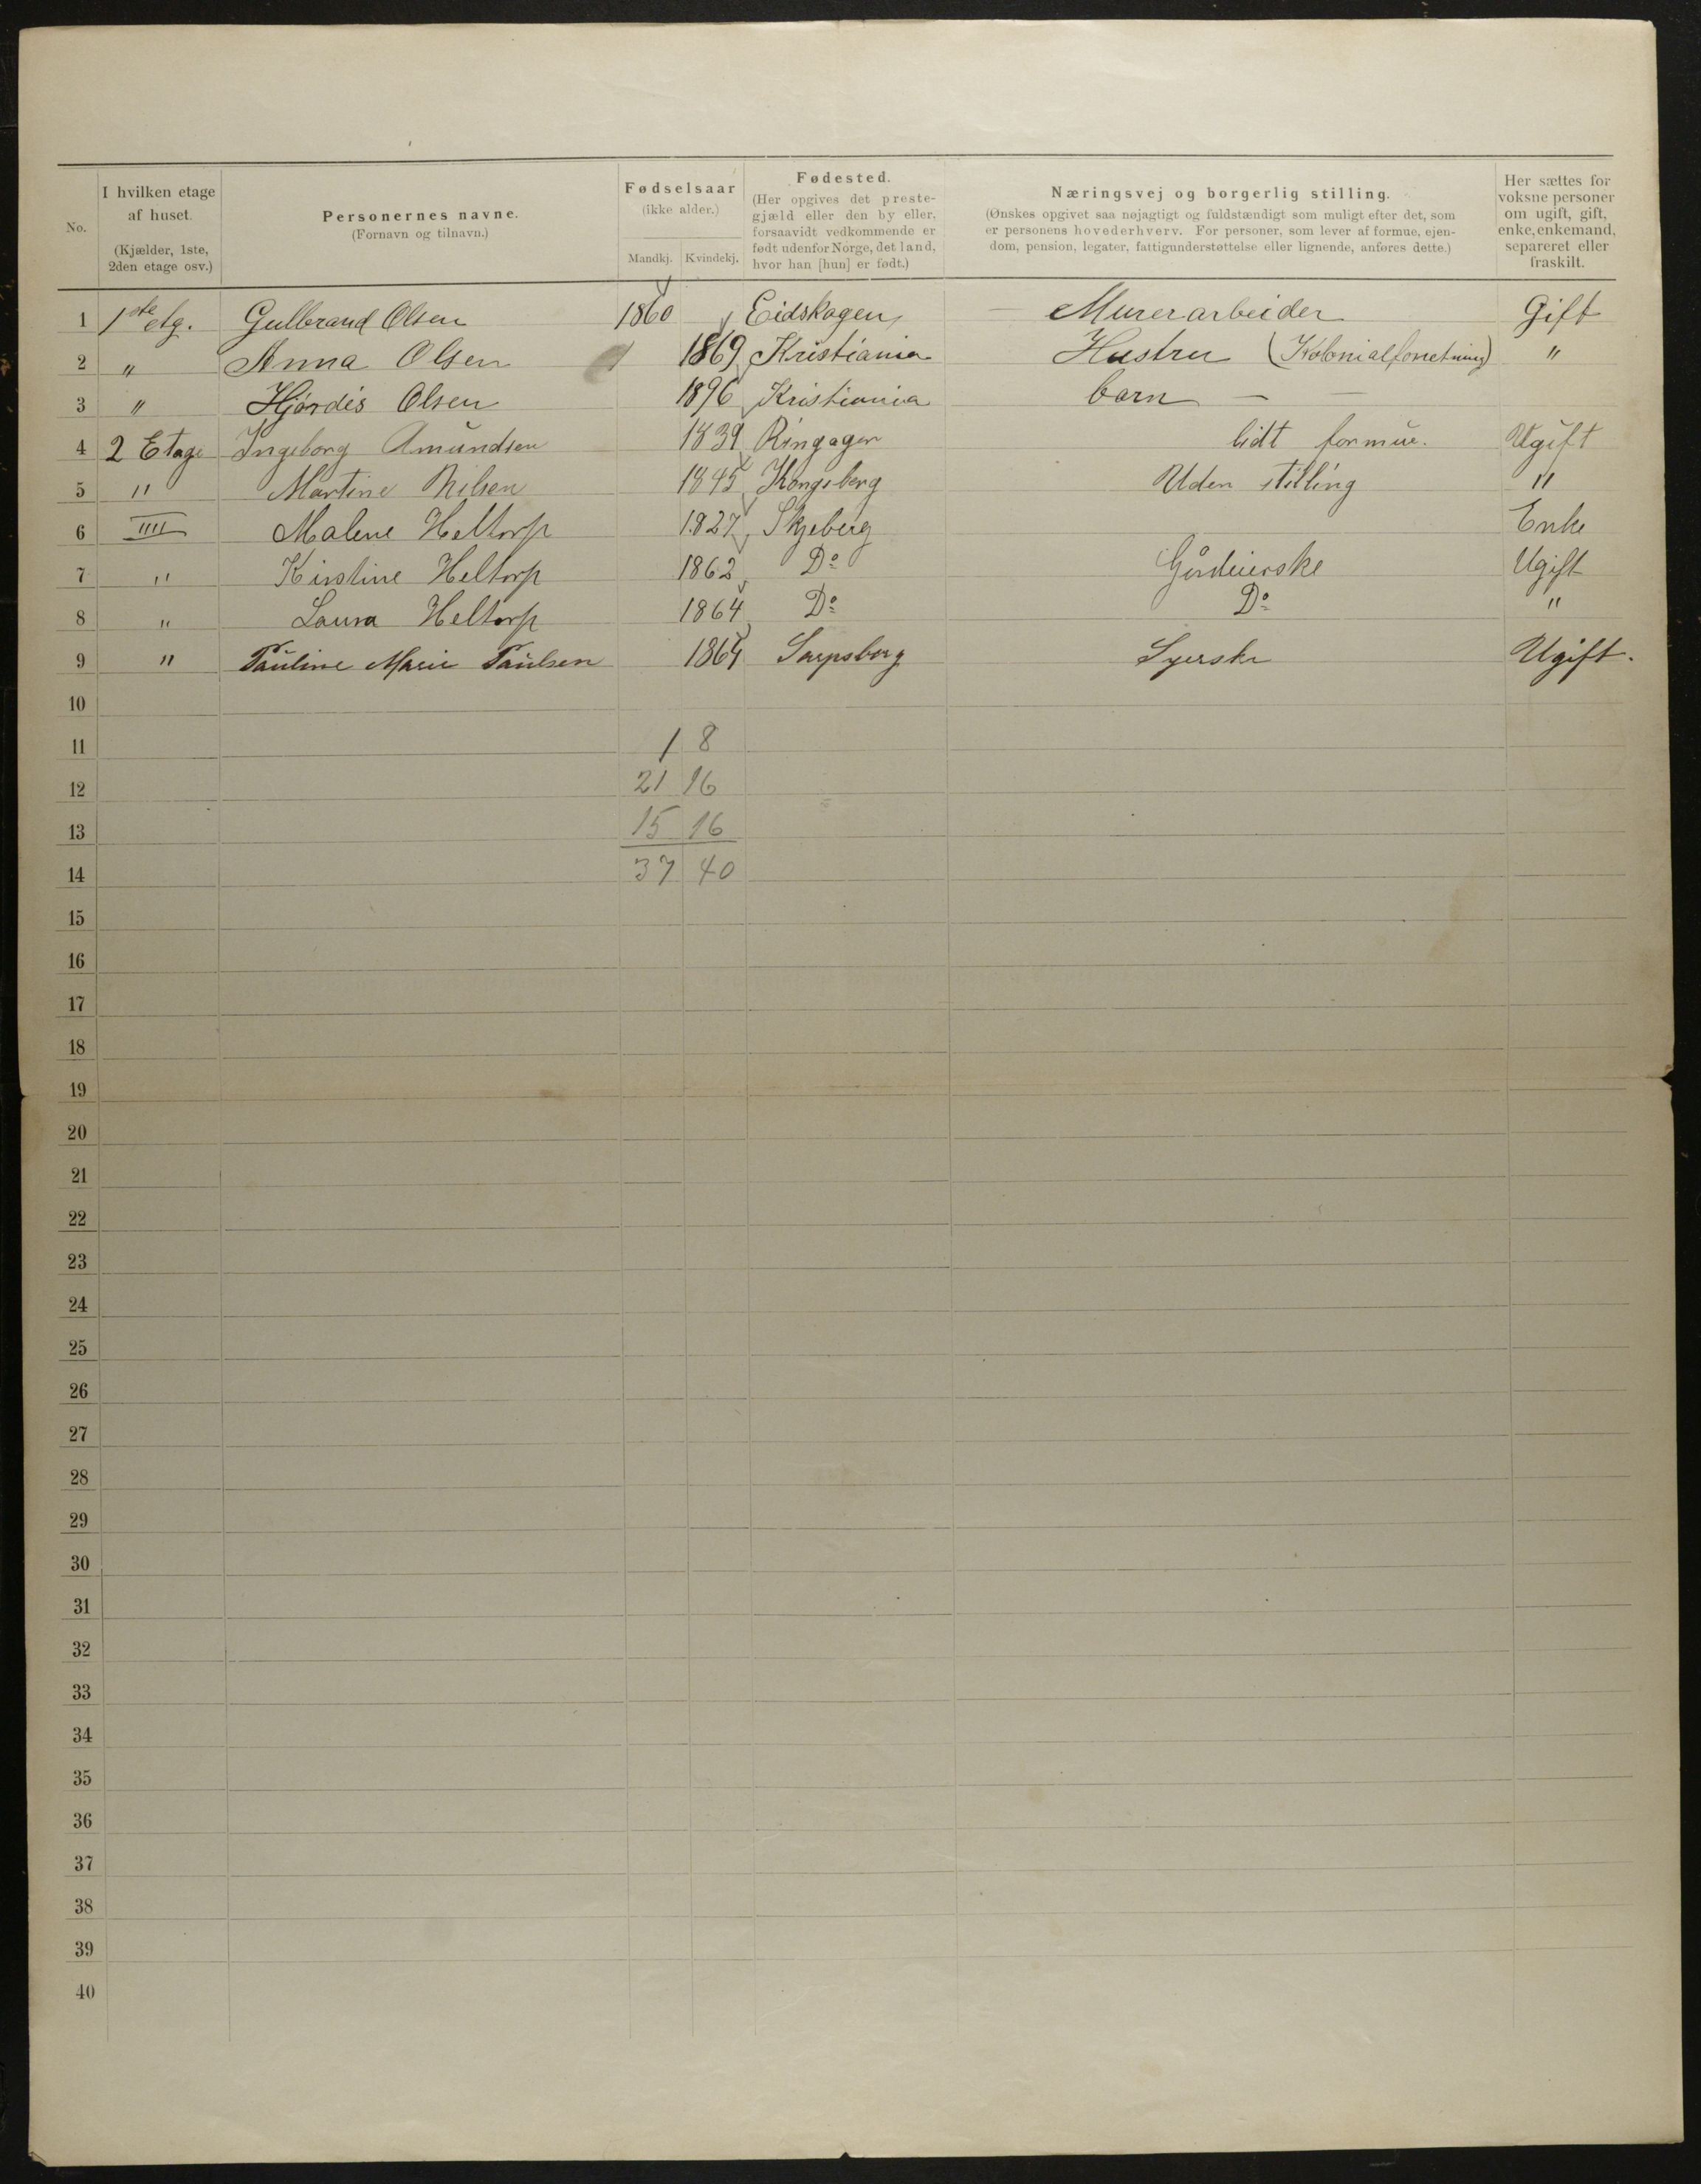 No. | I hvilken etage af huset. (Kjælder, 1ste, 2den etage osv.) | Personernes navne. (Fornavn og tilnavn.) | Fødselsaar (ikke alder.) Mandkj. Kvindekj. | Fødested. (Her opgives det prestegjæld eller den by eller, forsaavidt vedkommende er født udenfor Norge, det land, hvor han [hun] er født.) | Næringsvej og borgerlig stilling. (Ønskes opgivet saa nøjagtigt og fuldstændigt som muligt efter det, som er personens hovederhverv. For personer, som lever af formue, ejendom, pension, legater, fattigunderstøttelse eller lignende, anføres dette.) | Her sættes for voksne personer om ugift, gift, enke, enkemand, separeret eller fraskilt.
1 1ste etg. Gulbrand Olsen 1860 Eidskogen Murerarbeider Gift
2 " Anna Olsen 1869 Kristiania Hustru (Kolonialforretning) "
3 " Hjørdis Olsen 1896 Kristiania barn — —
4 2 Etage Ingeborg Amundsen 1839 Ringager lidt formue. Ugift
5 " Martine Nilsen 1845 Kongsberg Uden stilling "
6 IIII Malene Heltorp 1827 Skjeberg Enke
7 " Kirstine Heltorp 1862 Do Gårdeierske Ugift
8 " Laura Heltorp 1864 Do Do "
9 " Pauline Marie Paulsen 1864 Sarpsborg Syerske Ugift.
10
11 1 8
12 21 16
13 15 16
14 37 40
15
16
17
18
19
20
21
22
23
24
25
26
27
28
29
30
31
32
33
34
35
36
37
38
39
40